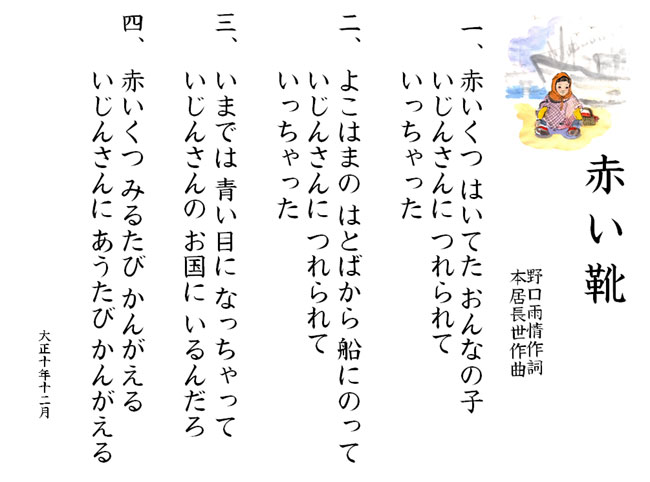 赤い靴
野口雨情作詞
本居長世作曲
一、赤いくつ はいてた おんなの子
いじんさんに つれられて
いっちゃった
二、よこはまの はとばから 船にのって
いじんさんに つれられて
いっちゃった
三、いまでは 青い目に なっちゃって
いじんさんの お国に いるんだろ
四、赤いくつ みるたび かんがえる
いじんさんに あうたび かんがえる
大正十年十二月